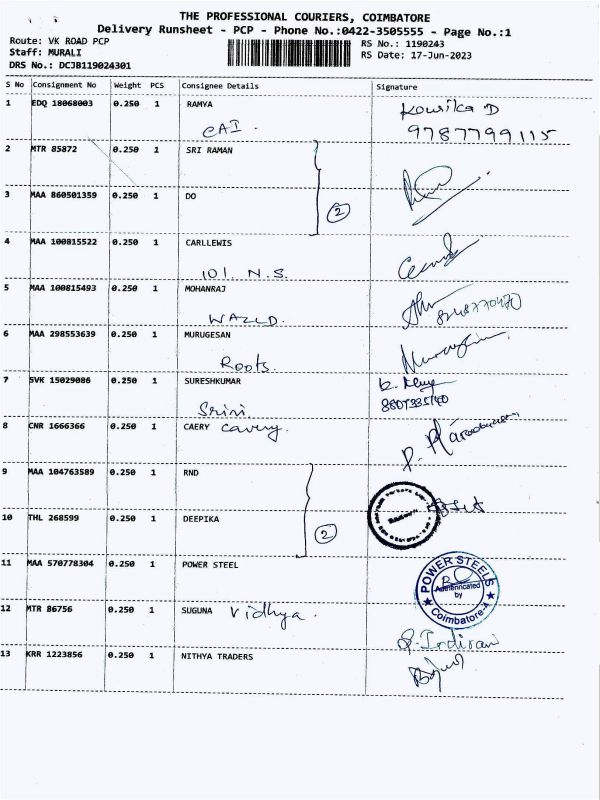 THE PROFESSIONAL COURIERS, COIMBATORE
Delivery Runsheet - PCP - Phone No.:0422-3505555 - Page No.:1
Route: VK ROAD PCP
RS No.: 1190243
Staff: MURALI
RS Date: 17-Jun-2023
DRS No.: DCJB119024301
S No Consignment No Weight PCS Consignee Details Signature
1 EDQ 18068003 0.250 1 RAMYA
CAI. 9787799115
2 MTR 85872 0.250 1 SRI RAMAN
3 MAA 860501359 0.250 1 DO
2
4 MAA 100815522 0.250 1 CARLLEWIS
101 N.S.
5 MAA 100815493 0.250 1 MOHANRAJ
6 MAA 298553639 0.250 1 MURUGESAN
Roots.
7 SVK 15029086 0.250 1 SURESHKUMAR
Srini.
8 CNR 1666366 0.250 1 CAERY Cavery.
9 MAA 104763589 0.250 1 RND
10 THL 268599 0.250 1 DEEPIKA
2
11 MAA 570778304 0.250 1 POWER STEEL
POWER STEELS
Authenticated
by
Coimbatore-4
12 MTR 86756 0.250 1 SUGUNA Vidhya.
Indirani
13 KRR 1223856 0.250 1 NITHYA TRADERS